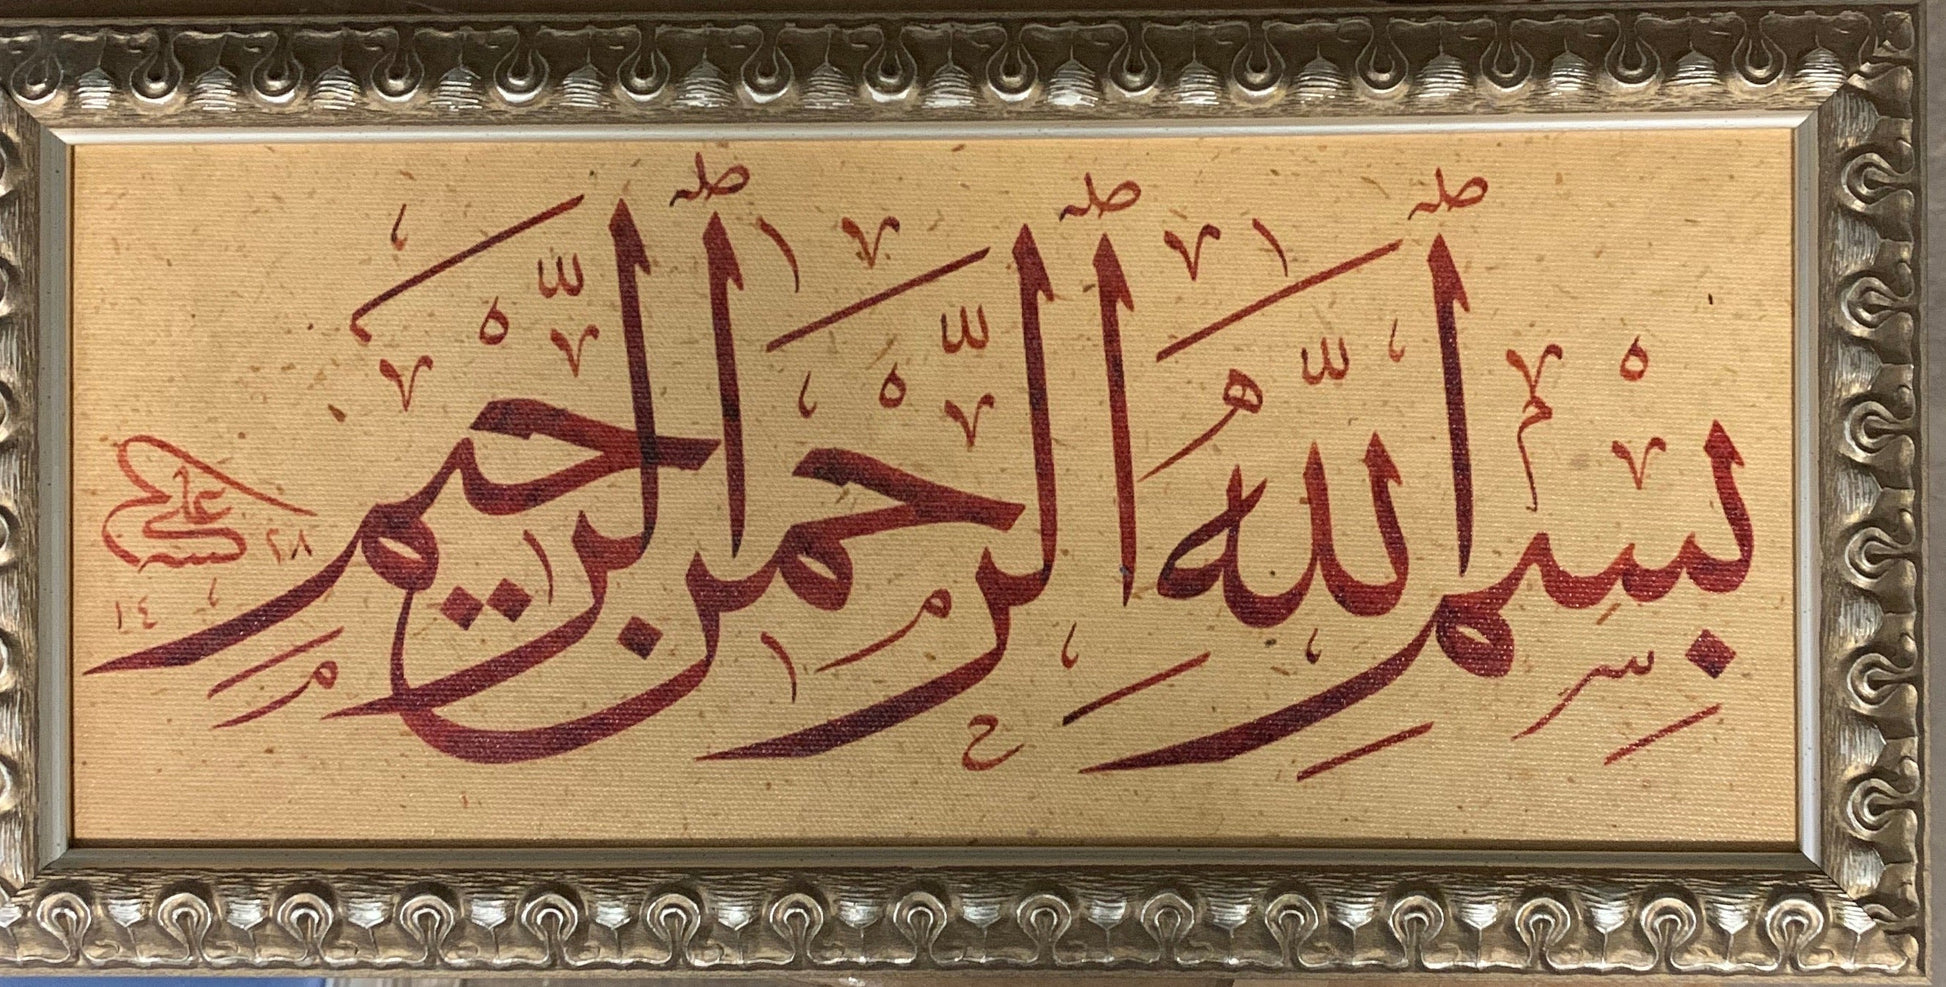 بِسْمِ اللهِ الرَّحْمٰنِ الرَّحِيمِ
علي
١٤٢٨